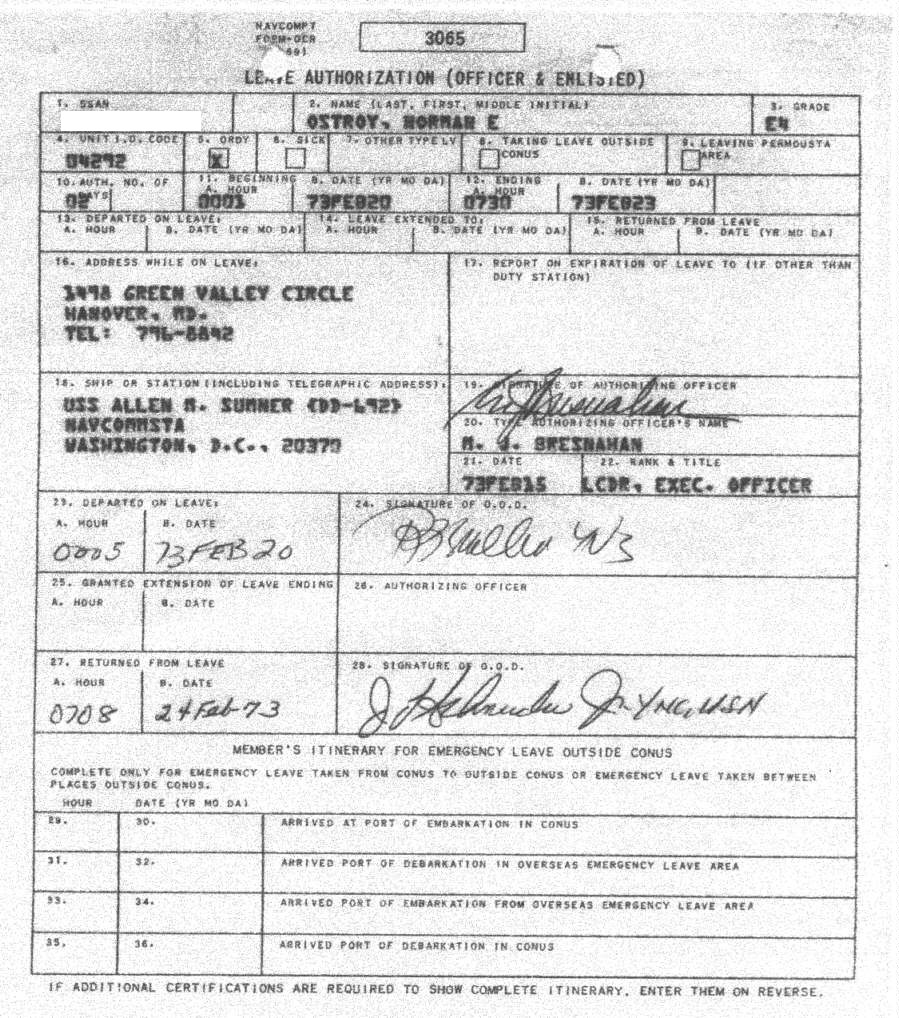 NAVCOMPT
FORM-OCR
3065
LEAVE AUTHORIZATION (OFFICER & ENLISTED)
1. SSAN
2. NAME (LAST, FIRST, MIDDLE INITIAL)
3. GRADE
OSTROY, NORMAN E
E4
4. UNIT I.D. CODE
5. ORDY
6. SICK
7. OTHER TYPE LV
8. TAKING LEAVE OUTSIDE CONUS
9. LEAVING PERMDUSTA AREA
04292
X
10. AUTH. NO. OF DAYS
11. BEGINNING
A. HOUR
B. DATE (YR MO DA)
12. ENDING
A. HOUR
B. DATE (YR MO DA)
02
0001
73FEB20
0730
73FEB23
13. DEPARTED ON LEAVE:
A. HOUR
B. DATE (YR MO DA)
14. LEAVE EXTENDED TO:
A. HOUR
B. DATE (YR MO DA)
15. RETURNED FROM LEAVE
A. HOUR
B. DATE (YR MO DA)
16. ADDRESS WHILE ON LEAVE:
GREEN VALLEY CIRCLE
HANOVER, MD.
TEL: 796-8842
17. REPORT ON EXPIRATION OF LEAVE TO (IF OTHER THAN
DUTY STATION)
18. SHIP OR STATION (INCLUDING TELEGRAPHIC ADDRESS):
USS ALLEN M. SUMNER (DD-692)
NAVCOMMSTA
WASHINGTON, D.C., 20370
19. SIGNATURE OF AUTHORIZING OFFICER
20. TYPE AUTHORIZING OFFICER'S NAME
M. J. BRESNAHAN
21. DATE
22. RANK & TITLE
73FEB15
LCDR, EXEC. OFFICER
23. DEPARTED ON LEAVE:
A. HOUR
B. DATE
0005
73FEB20
24. SIGNATURE OF O.O.D.
YN3
25. GRANTED EXTENSION OF LEAVE ENDING
A. HOUR
B. DATE
26. AUTHORIZING OFFICER
27. RETURNED FROM LEAVE
A. HOUR
B. DATE
0708
24 Feb 73
28. SIGNATURE OF O.O.D.
Jr. YNC, USN
MEMBER'S ITINERARY FOR EMERGENCY LEAVE OUTSIDE CONUS
COMPLETE ONLY FOR EMERGENCY LEAVE TAKEN FROM CONUS TO OUTSIDE CONUS OR EMERGENCY LEAVE TAKEN BETWEEN
PLACES OUTSIDE CONUS.
HOUR
DATE (YR MO DA)
29.
30.
ARRIVED AT PORT OF EMBARKATION IN CONUS
31.
32.
ARRIVED PORT OF DEBARKATION IN OVERSEAS EMERGENCY LEAVE AREA
33.
34.
ARRIVED PORT OF EMBARKATION FROM OVERSEAS EMERGENCY LEAVE AREA
35.
36.
ARRIVED PORT OF DEBARKATION IN CONUS
IF ADDITIONAL CERTIFICATIONS ARE REQUIRED TO SHOW COMPLETE ITINERARY, ENTER THEM ON REVERSE.